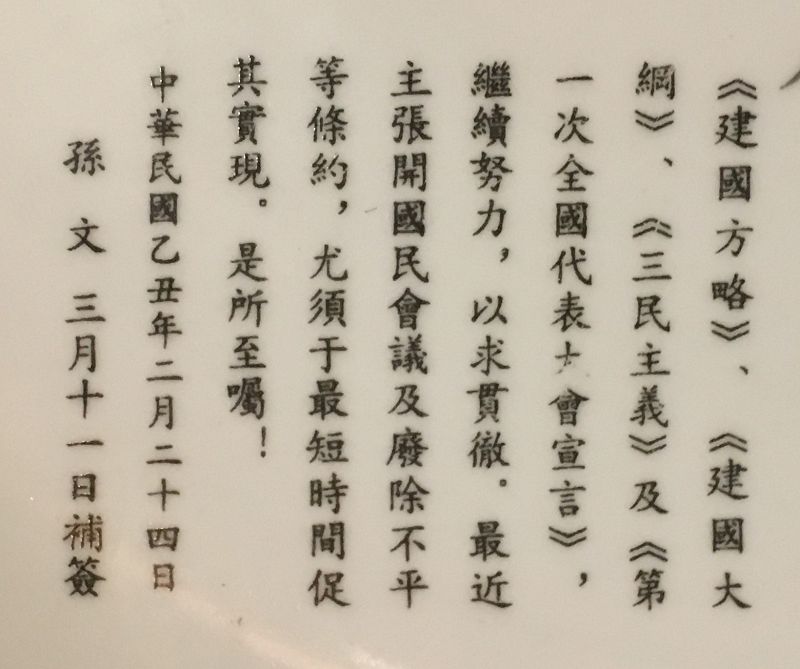 《建國方略》、《建國大
綱》、《三民主義》及《第
一次全國代表大會宣言》，
繼續努力，以求貫徹。最近
主張開國民會議及廢除不平
等條約，尤須于最短時間促
其實現。是所至囑！
中華民國乙丑年二月二十四日
孫文 三月十一日補簽